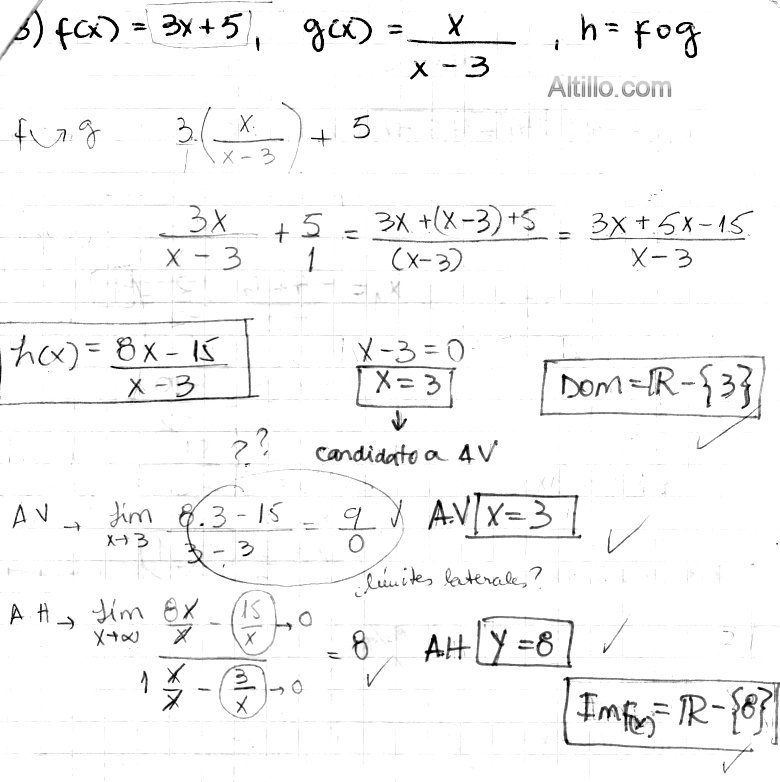 3) f(x) = 3x+5, g(x) = x/(x-3), h = fog
Altillo.com
f ↪ g 3/1 (x/(x-3)) + 5
3x/(x-3) + 5/1 = (3x+(x-3)+5)/(x-3) = (3x+5x-15)/(x-3)
h(x) = (8x-15)/(x-3)
x-3=0
x=3
Dom=ℝ-{3} ✓
↓
?? candidato a AV
AV → lim x→3 (8.3-15)/(3-3) = 9/0 ✓ A.V x=3 ✓
¿límites laterales?
AH → lim x→∞ (8x/x - 15/x →0)/(1 x/x - 3/x →0) = 8 ✓ AH y=8 ✓
Im f(x) = ℝ-{8} ✓